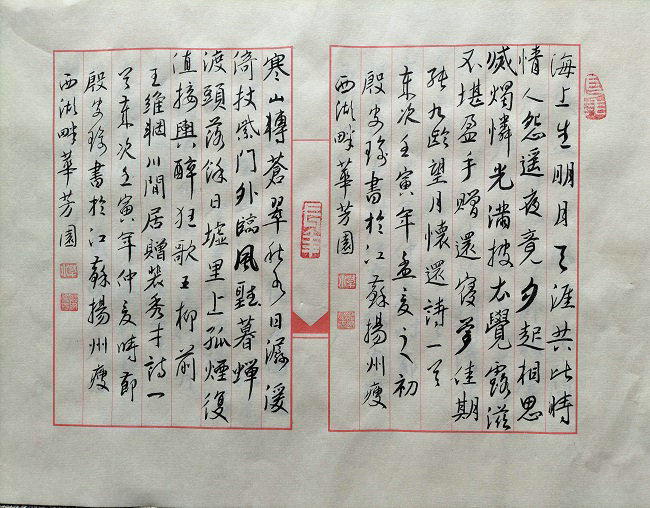 海上生明月天涯共此時
情人怨遥夜竟夕起相思
滅燭憐光滿披衣覺露滋
不堪盈手贈還寝夢佳期
張九龄望月懷遠詩一首
末次壬寅年孟夏之初
殷安瑜書於江蘇揚州瘦
西湖畔華芳園
寒山轉蒼翠秋水日潺湲
倚杖柴门外臨風聽暮蝉
渡頭落餘日墟里上孤煙復
值接輿醉狂歌五柳前
王維輞川閒居贈裴秀才詩一
首末次壬寅年仲夏時節
殷安瑜書於江蘇揚州瘦
西湖畔華芳園